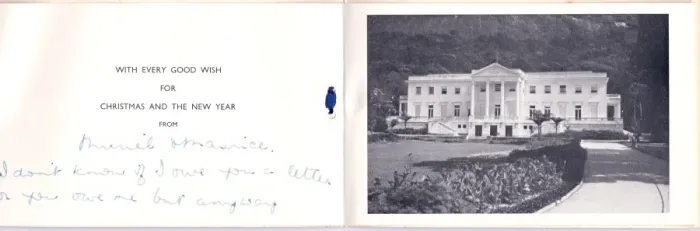 WITH EVERY GOOD WISH
FOR
CHRISTMAS AND THE NEW YEAR
FROM
Muriel & Maurice.
I don't know if I owe you a letter
or you owe me but anyway